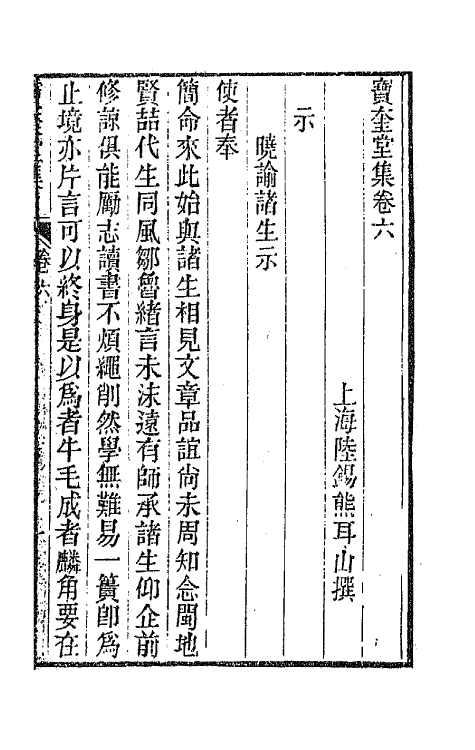 寶奎堂集卷六
上海陸錫熊耳山撰
示
曉諭諸生示
使者奉
簡命來此始與諸生相見文章品誼尙未周知念閩地
賢喆代生同風鄒魯緖言未沫遠有師承諸生仰企前
修諒俱能勵志讀書不煩繩削然學無難易一簣卽爲
止境亦片言可以終身是以爲者牛毛成者麟角要在
卷六